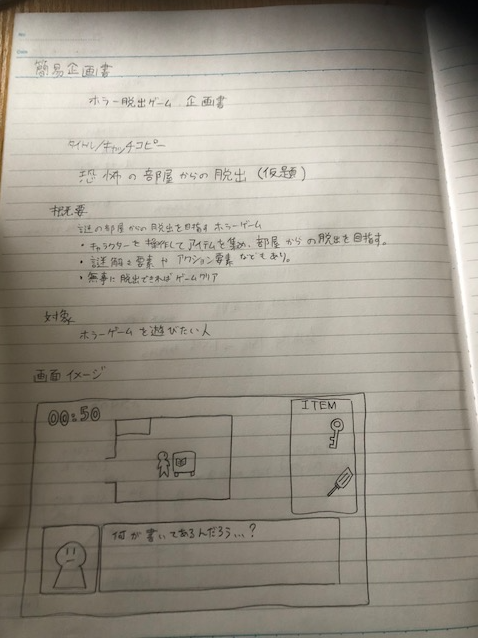 No.
Date
簡易企画書
ホラー脱出ゲーム 企画書
タイトル/キャッチコピー
恐怖の部屋からの脱出(仮題)
概要
謎の部屋からの脱出を目指すホラーゲーム
・キャラクターを操作してアイテムを集め、部屋からの脱出を目指す。
・謎解き要素やアクション要素などもあり。
・無事に脱出できればゲームクリア
対象
ホラーゲームを遊びたい人
画面イメージ
00:50
ITEM
何が書いてあるんだろう…?